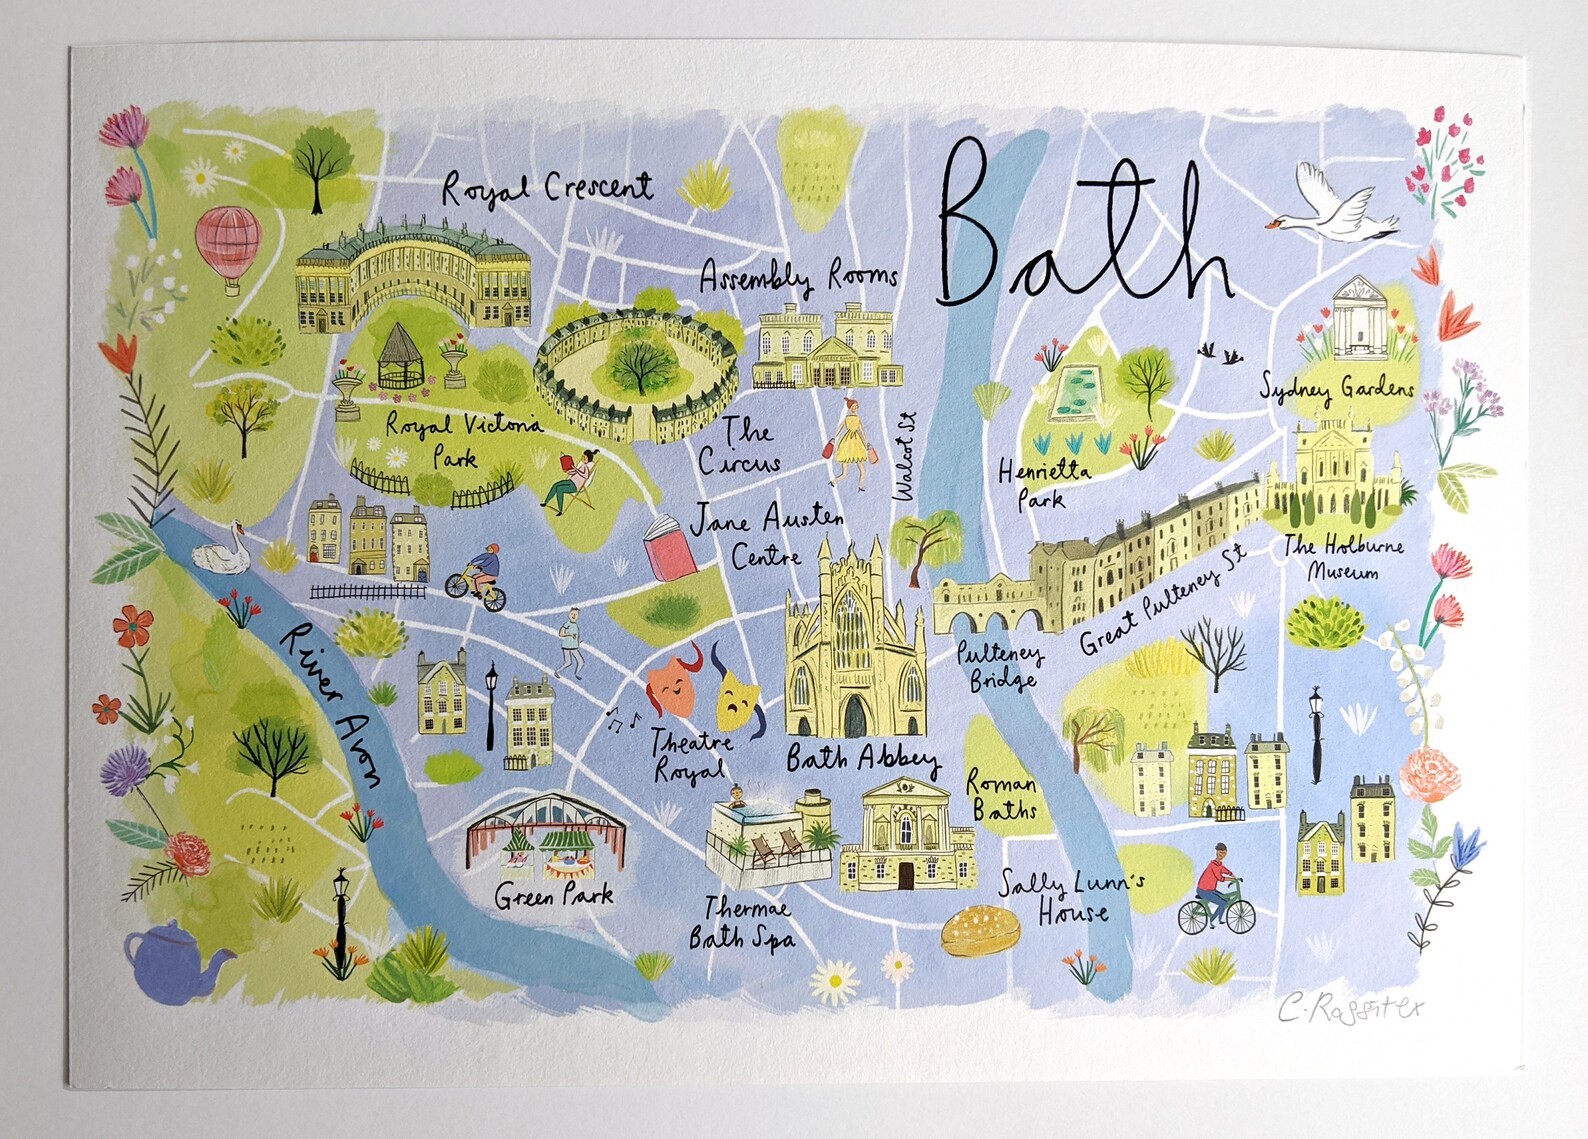 Bath
Royal Crescent
Assembly Rooms
Sydney Gardens
Royal Victoria
Park
The
Circus
Walcot St
Henrietta
Park
Jane Austen
Centre
The Holburne
Museum
Great Pulteney St
Pulteney
Bridge
River Avon
Theatre
Royal
Bath Abbey
Roman
Baths
Green Park
Thermae
Bath Spa
Sally Lunn's
House